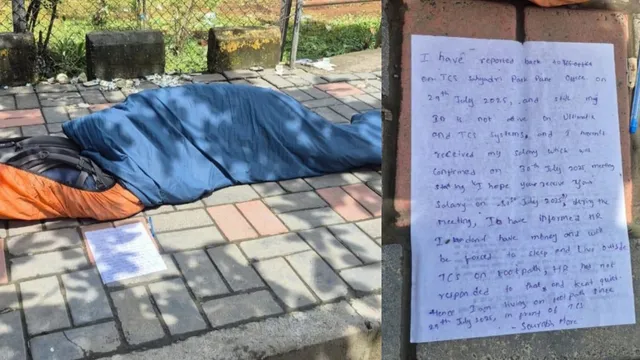 I have reported back to
on TCS Sahyadri Park Pune Office on
29th July 2025, and still my
ID is not active on Ultimatix
and TCS systems, and I haven't
received my salary which was
confirmed on 30th July 2025 meeting
I hope you receive your
salary on 31st July 2025, during the
meeting, I have informed HR
I don't have money and will
be forced to sleep and live outside
TCS on footpath, HR has not
responded to that, and kept quiet
Hence I am living on footpath
29th July 2025, in front of TCS
- Saurabh More